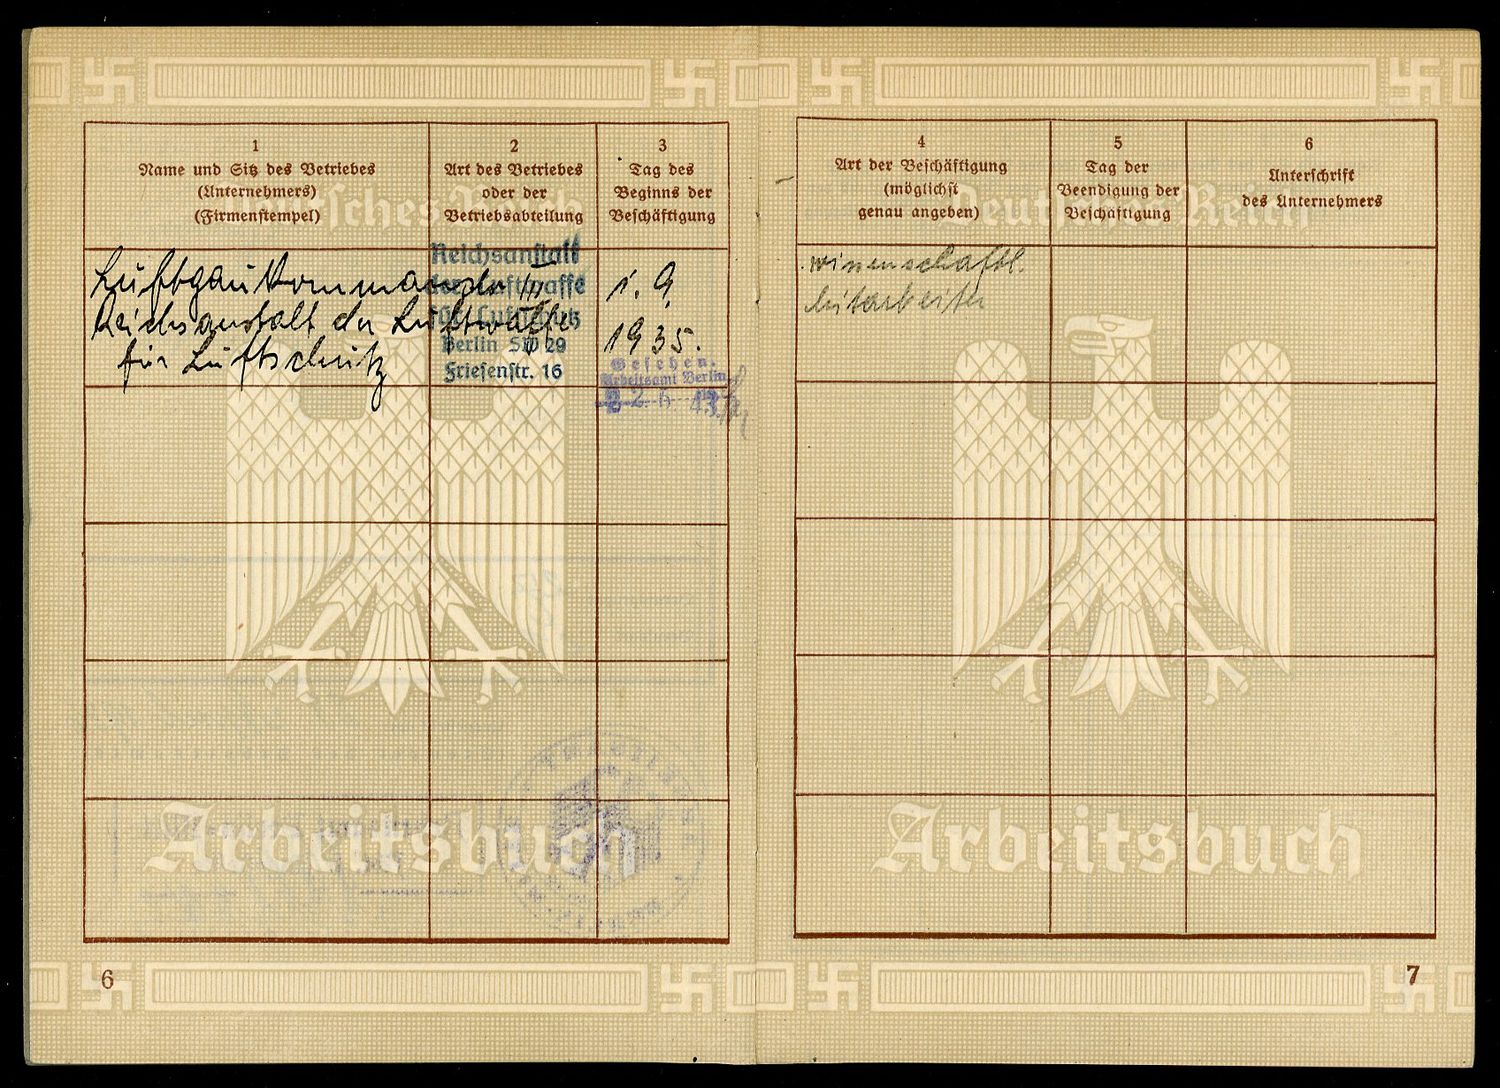 1
Name und Sitz des Betriebes
(Unternehmers)
(Firmenstempel)
2
Art des Betriebes
oder der
Betriebsabteilung
3
Tag des
Beginns der
Beschäftigung
Luftgaukommando III
Reichsanstalt der Luftwaffe
für Luftschutz
Reichsanstalt
der Luftwaffe
für Luftschutz
Berlin SW 29
Friesenstr. 16
1. 9.
1935.
Gesehen.
Arbeitsamt Berlin
Deutsches Reich
Arbeitsbuch
6
4
Art der Beschäftigung
(möglichst
genau angeben)
5
Tag der
Beendigung der
Beschäftigung
6
Unterschrift
des Unternehmers
wissenschaftl.
Mitarbeiter
Deutsches Reich
Arbeitsbuch
7